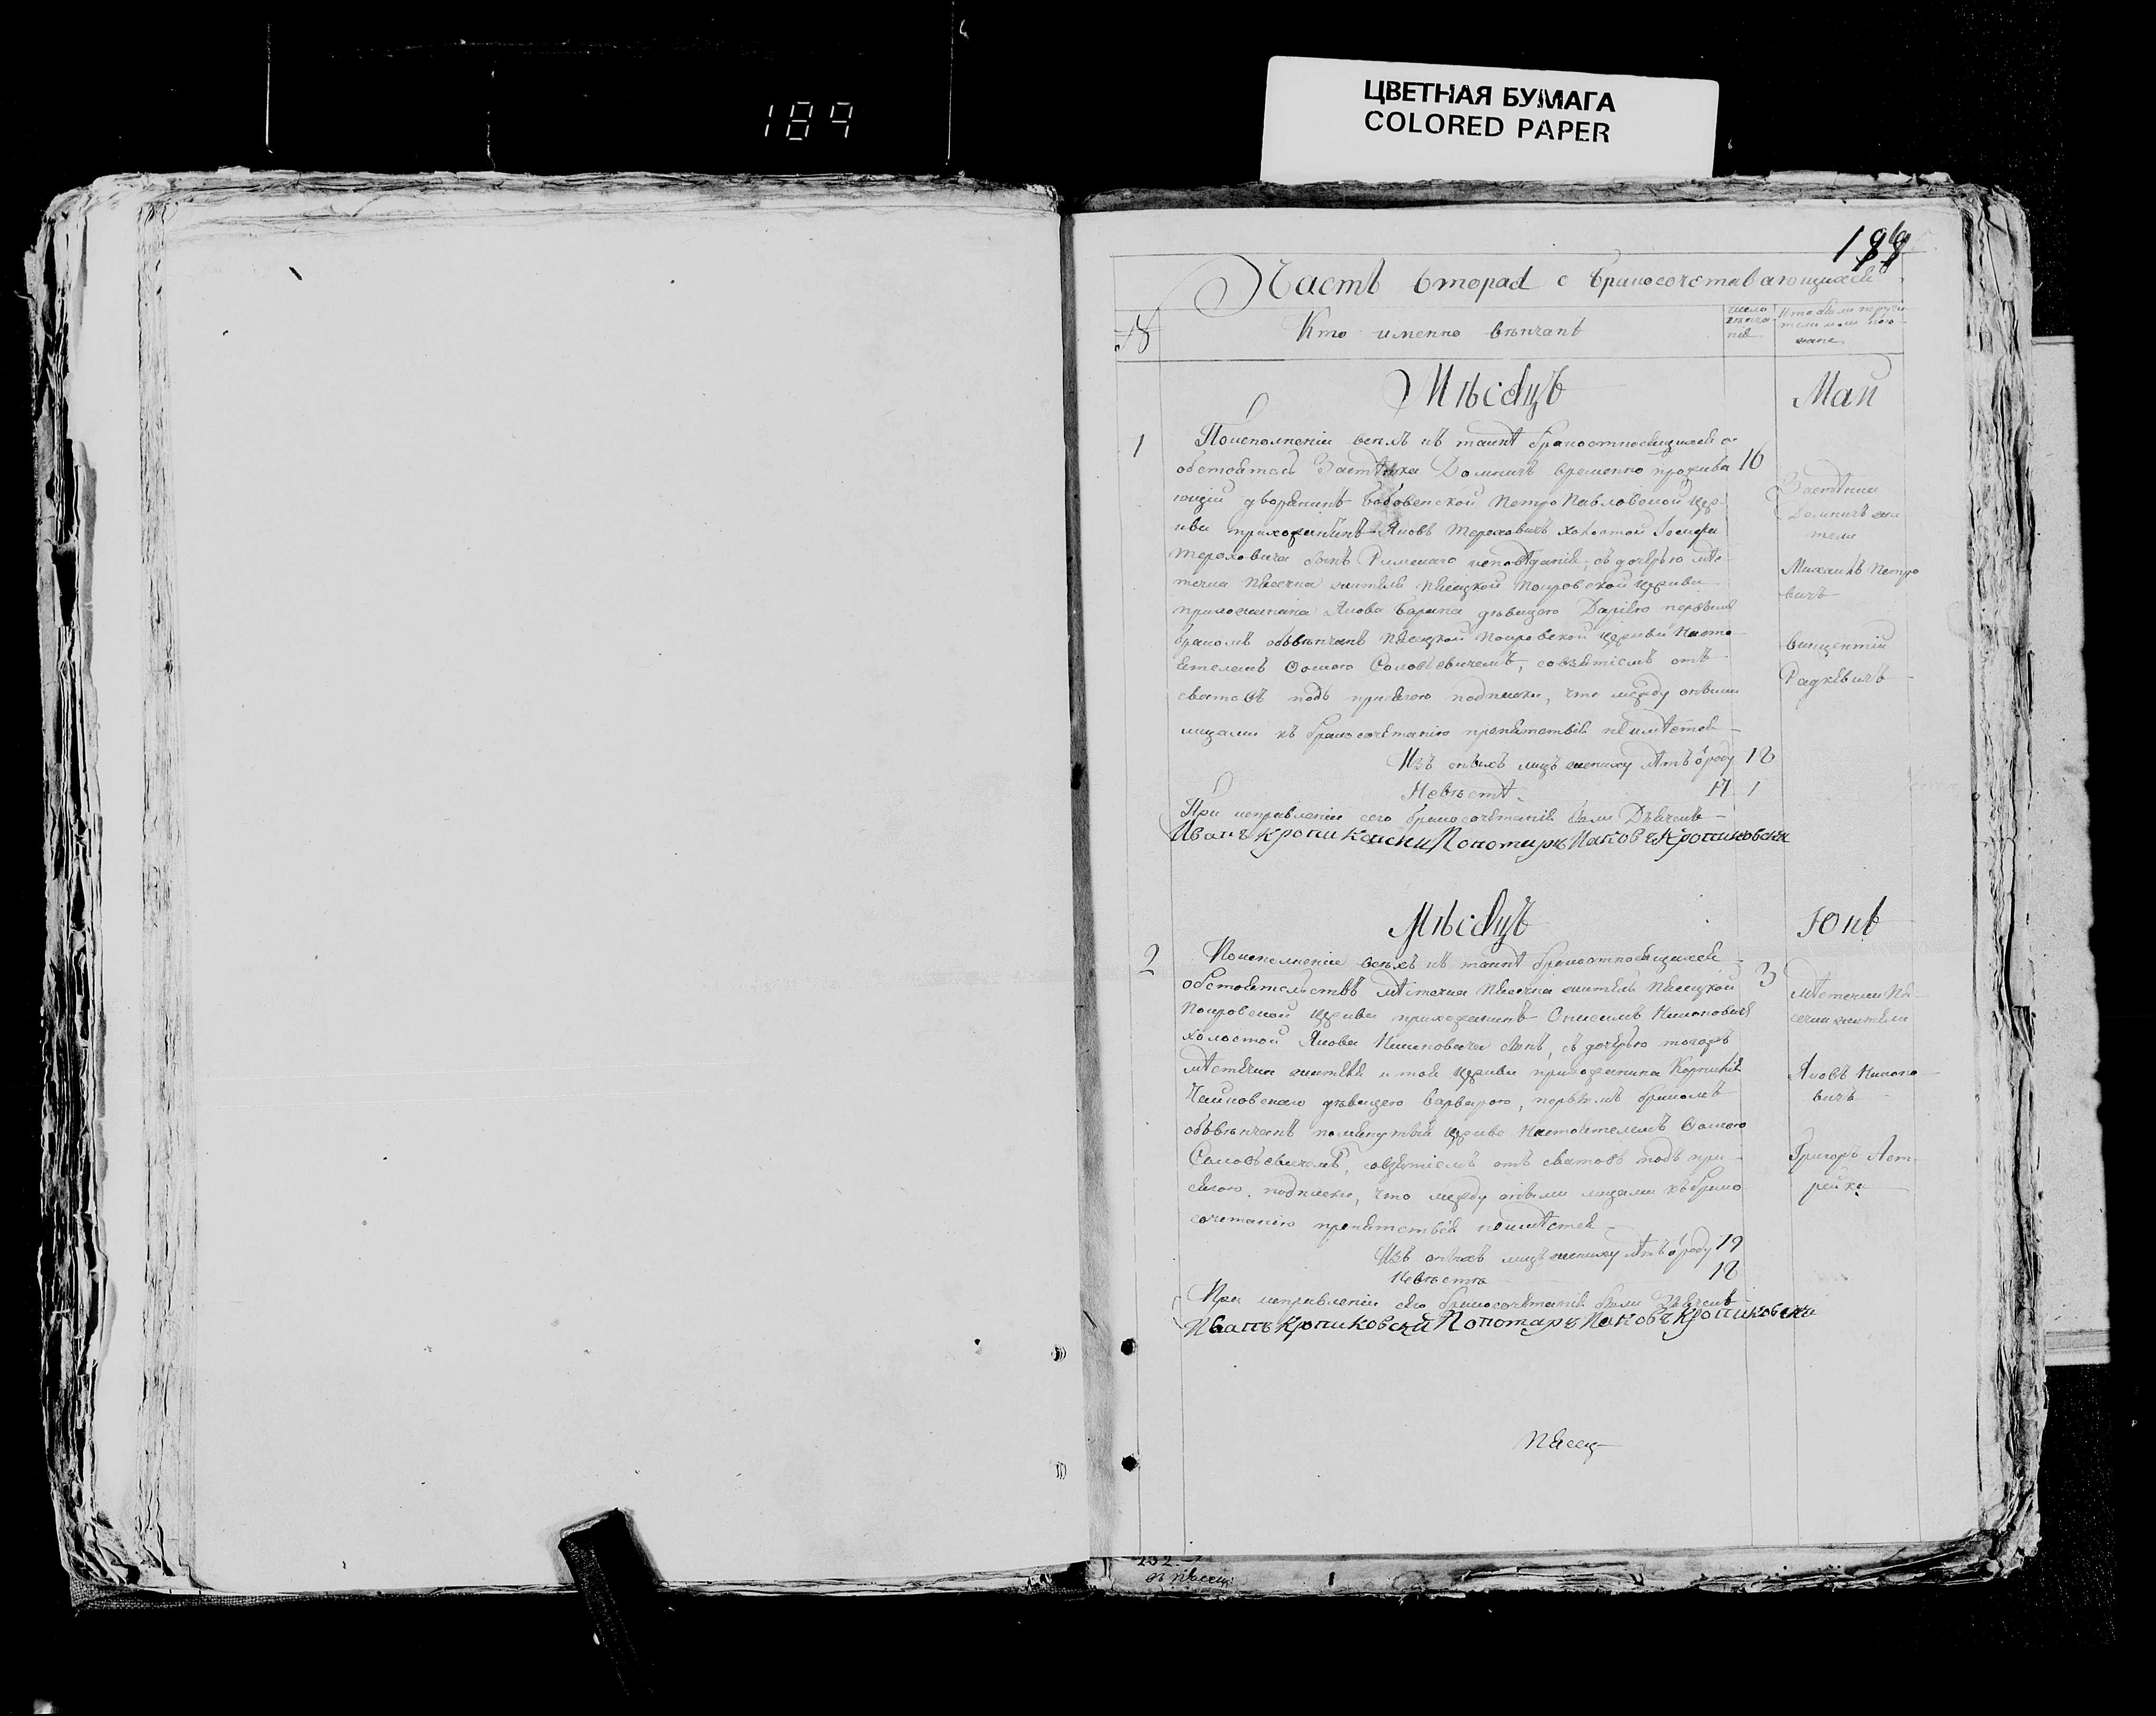 189
ЦВЕТНАЯ БУМАГА
COLORED PAPER
Часть вторая о браносочетавающихся
№
Кто именно вѣнчанъ
число вѣнча нія
Кто были поручи тели или пое зжане
Мѣсяцъ
Май
1
По исполненіи всѣхъ къ таинѣ бракоотносящихся
обстоятел Застѣнка Домничъ временно прожива
16
ющій дворянинъ Бобовенской Петро Павловской Цер
кви прихожанинъ Яковъ Тераховичъ холостой
Тераховича сынъ Римскаго исповѣданія, съ дочерью мѣс
течка Пясечна жителя Пясецкой Покровской Церкви
прихожанина Якова девицею Даріею первымъ
бракомъ обвѣнчанъ Пясецкой Покровской Церкви Насто
ятелемъ Фомою Соловьевичемъ, совзятіемъ отъ
сватовъ подъ присягою подписки, что между оными
лицами къ бракосочетанію препятствія неимѣется
Изъ оныхъ лицъ жениху лѣтъ 18
Невѣстѣ 17 1
При исправленіи сего бракосочетанія были Дьячекъ
Иванъ Кропиковски Пономарь Иаковъ Кропиковски
Застѣнка
Домничъ жи
тели
Михаилъ Петро
вичъ
Винцентій
Радкевичъ
Мѣсяцъ
Юнь
2
По исполненіи всѣхъ къ таинѣ бракоотносящихся
обстоятельствъ мѣстечка Пясечна житель Пясецкой
3
Покровской Церкви прихожанинъ Онисимъ
холостой Якова сынъ, съ дочерью тогожъ
мѣстечка жителя и той Церкви прихожанина Корнилія
Чайковскаго девицею Варварою, первымъ бракомъ
обвѣнчанъ помянутый Церкве Настоятелемъ Фомою
Соловьевичемъ, совзятіемъ отъ сватовъ подъ при
сягою подписки, что между оными лицами къ брако
сочетанію препятствія неимѣется
Изъ оныхъ лицъ жениху лѣтъ 19
Невѣстѣ 18
При исправленіи сего бракосочетанія были Дьячекъ
Иванъ Кропиковскій Пономарь Иаковъ Кропиковски
мѣстечка Пя
сечна жители
Яковъ
вичъ
Григоръ Аст
рейка
Пясец
232.